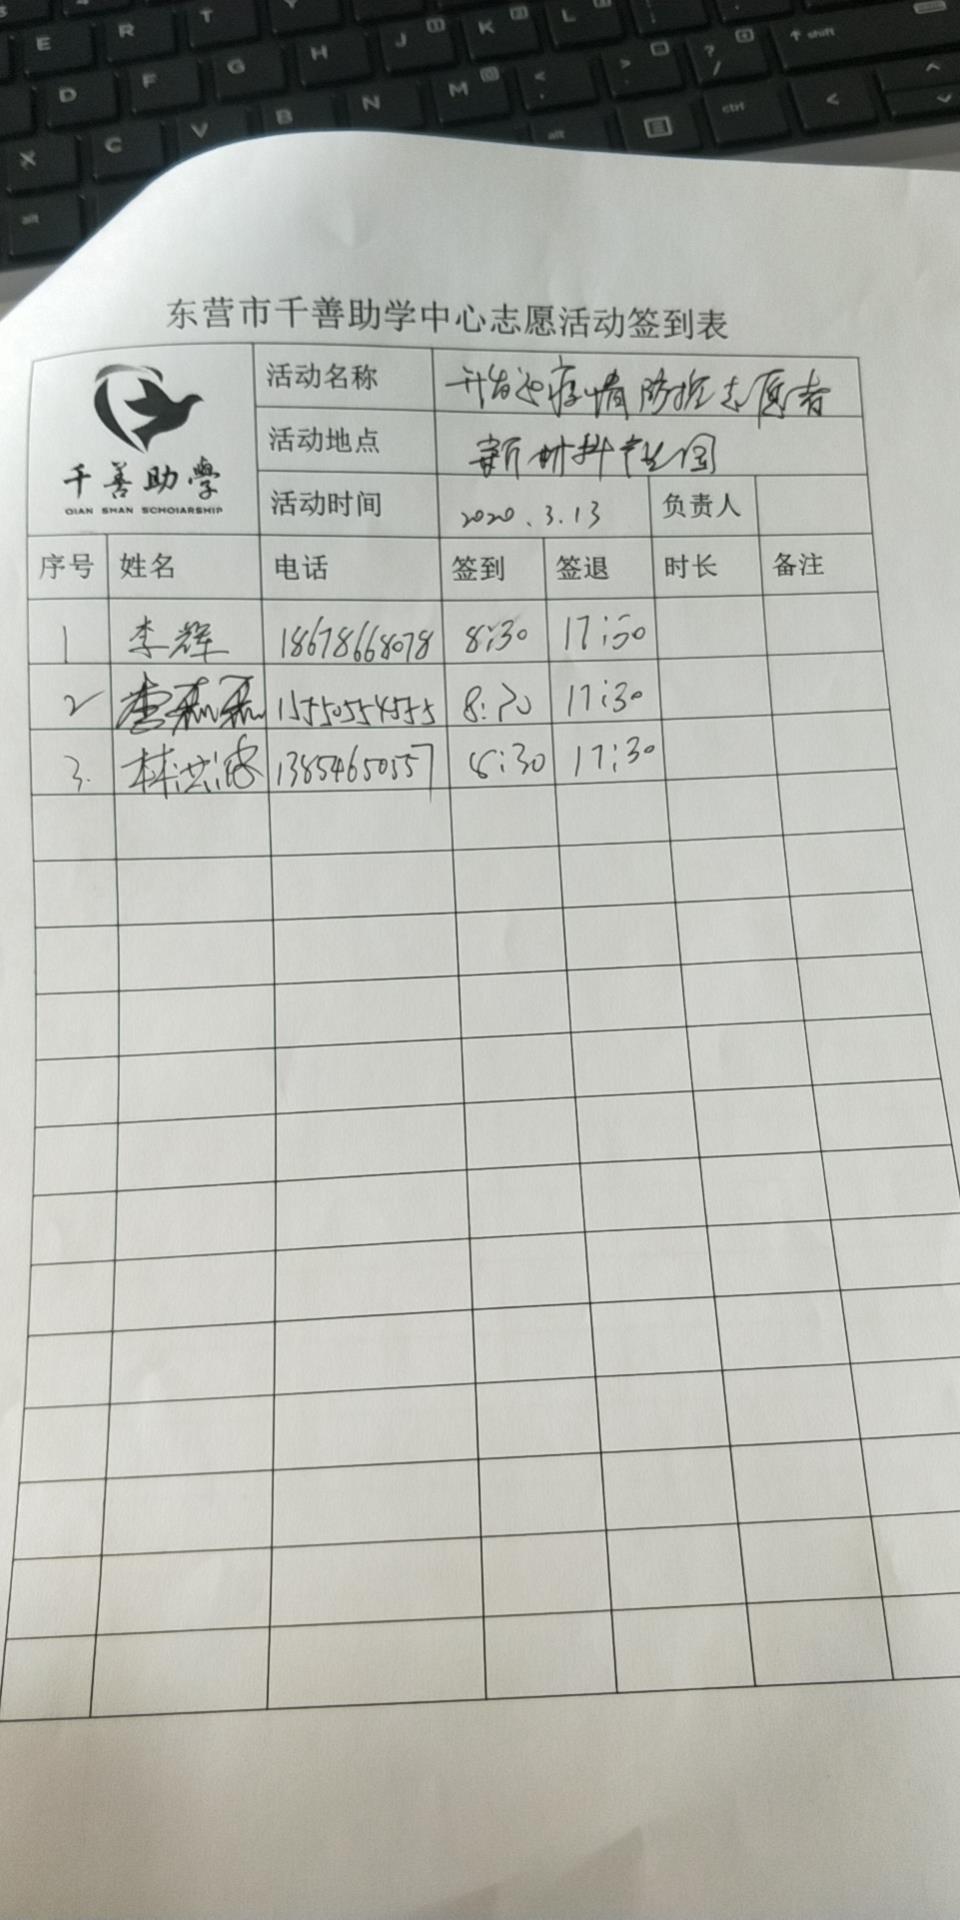 E R T Y
D F G H J K L
X C V B N M < > ? / ↑ shift
alt alt ctrl
东营市千善助学中心志愿活动签到表
千善助学
QIAN SHAN SCHOLARSHIP
活动名称 开发区疫情防控志愿者
活动地点 新材料产业园
活动时间 2020.3.13 负责人
序号 姓名 电话 签到 签退 时长 备注
1 李辉 18678668078 8:30 17:30
2 15550554555 8:30 17:30
3. 林洪波 13854650557 8:30 17:30